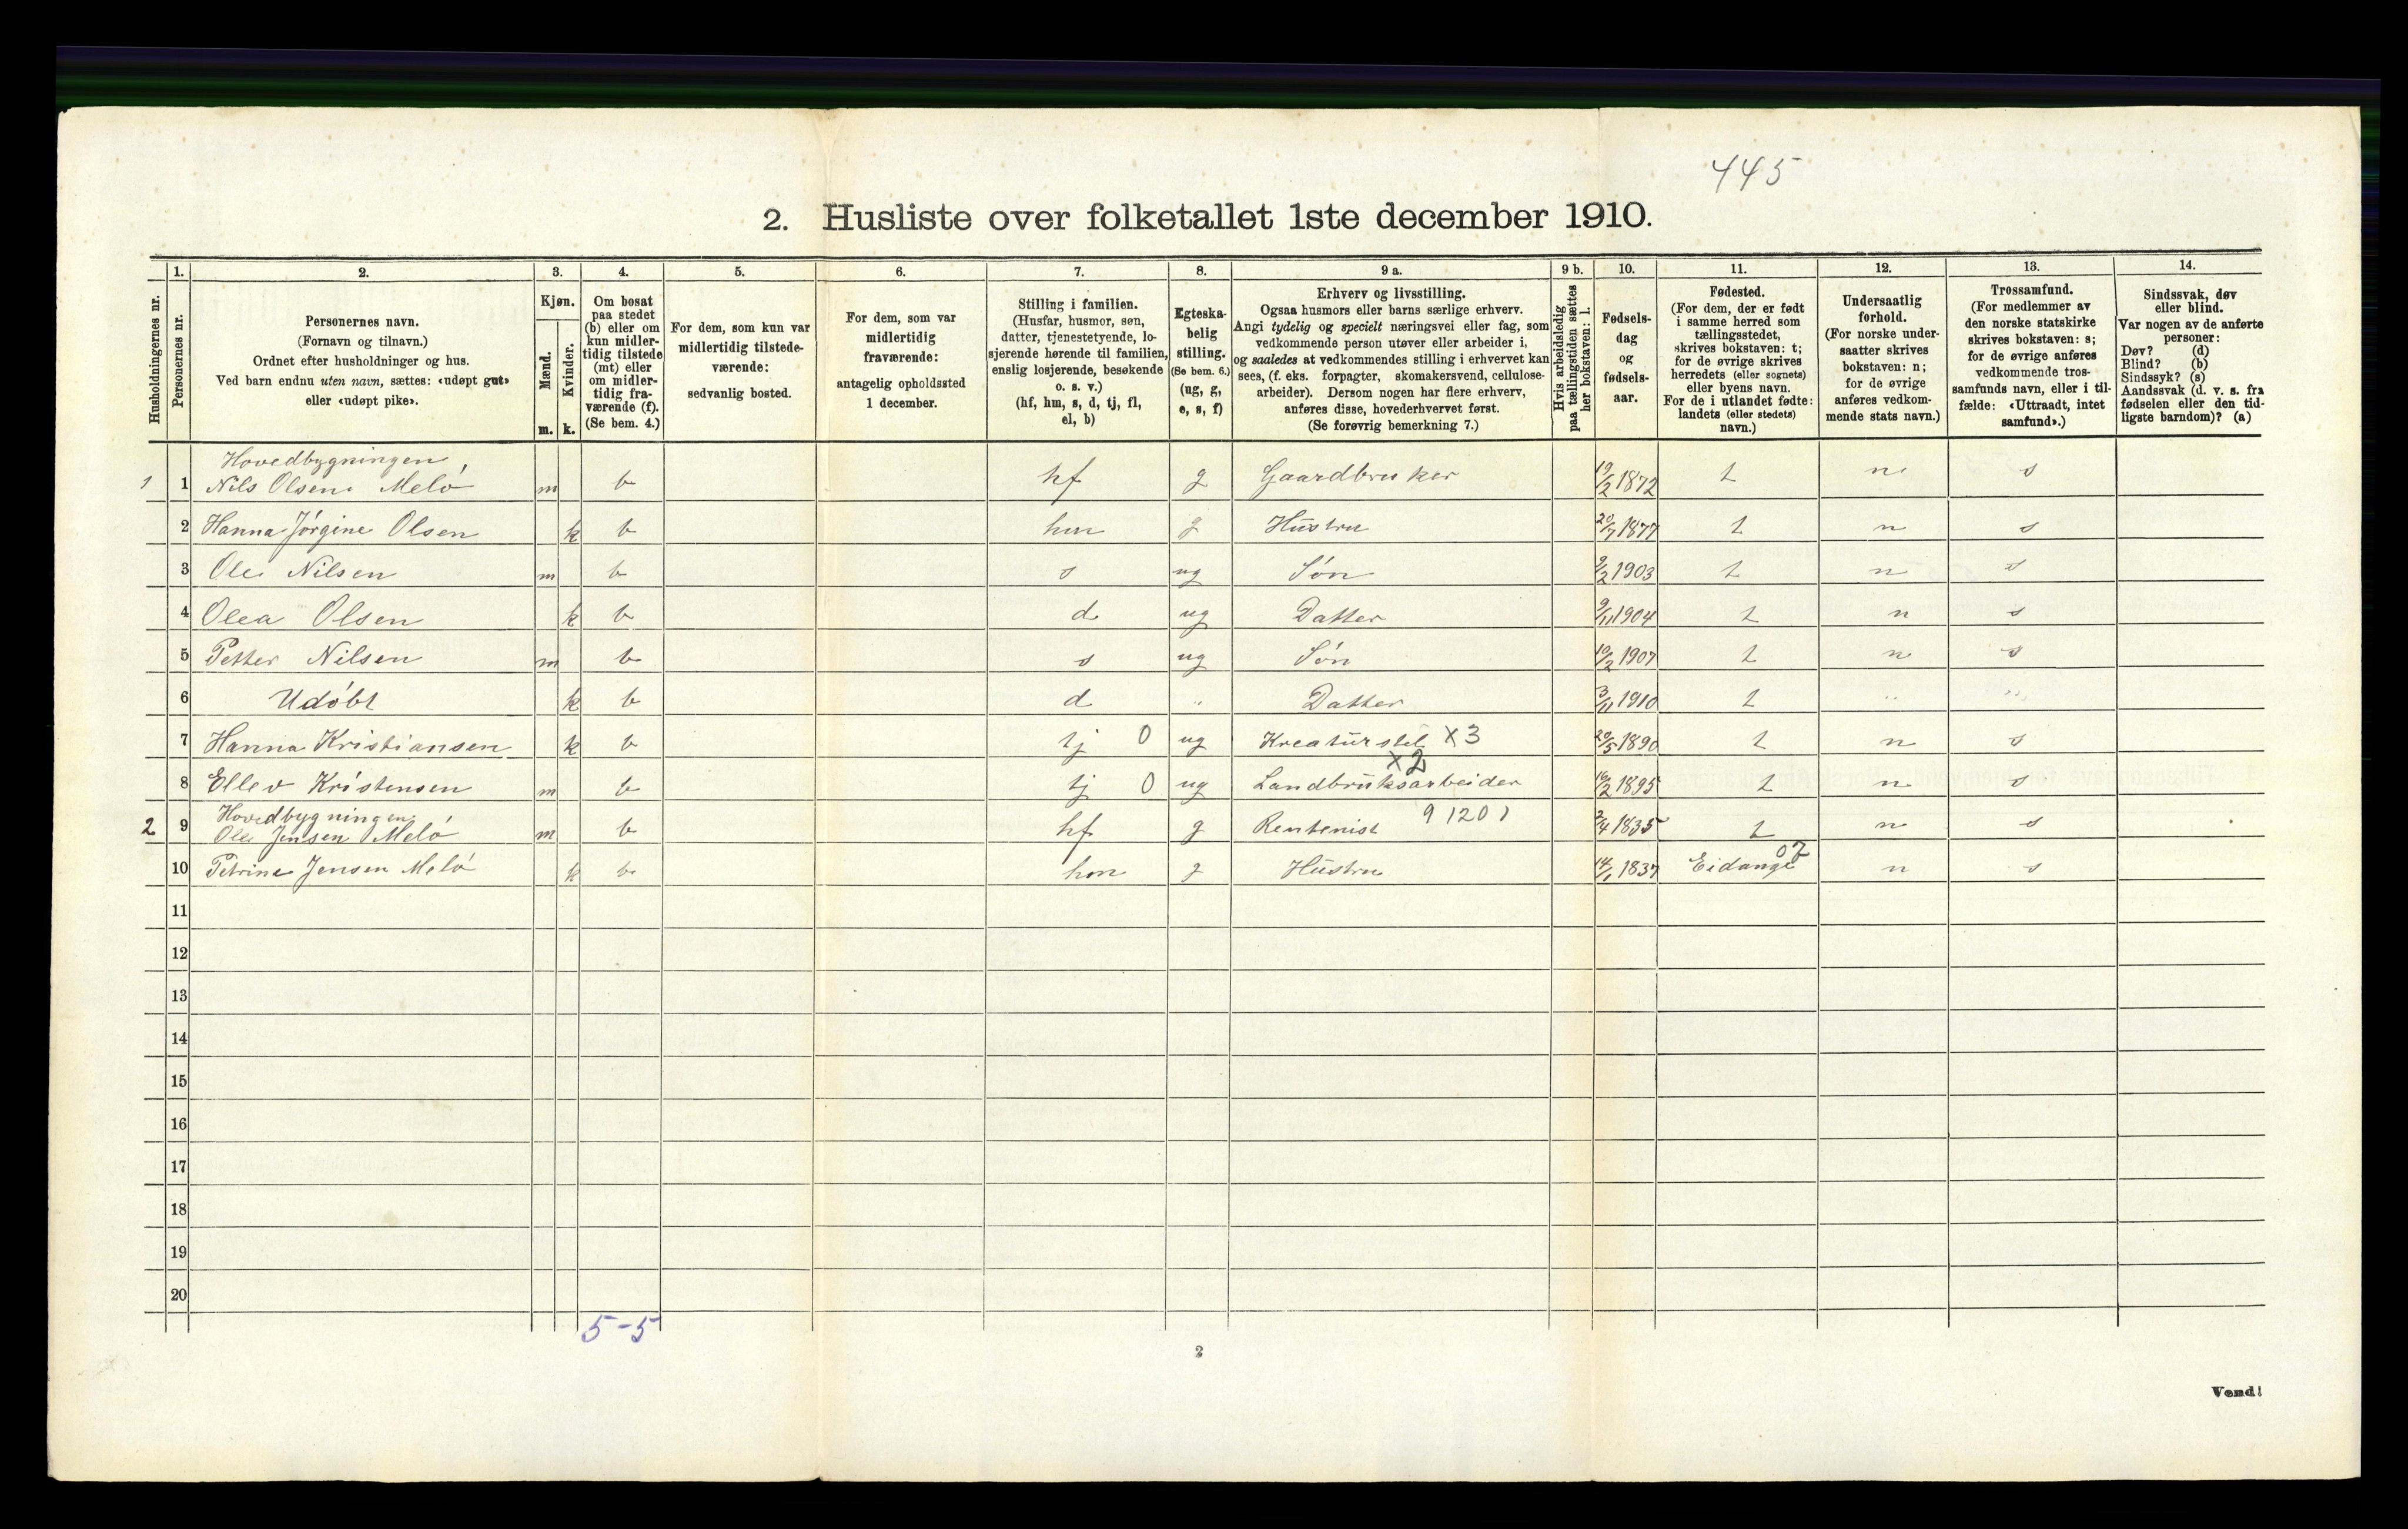 445
2. Husliste over folketallet 1ste december 1910.
Husholdningernes nr.
1.
Personernes nr.
2.
Personernes navn.
(Fornavn og tilnavn.)
Ordnet efter husholdninger og hus.
Ved barn endnu uten navn, sættes: «udøpt gut»
eller «udøpt pike».
3.
Kjøn.
Mænd.
Kvinder.
m. k.
4.
Om bosat
paa stedet
(b) eller om
kun midler-
tidig tilstede
(mt) eller
om midler-
tidig fra-
værende (f).
(Se bem. 4.)
5.
For dem, som kun var
midlertidig tilstede-
værende:
sedvanlig bosted.
6.
For dem, som var
midlertidig
fraværende:
antagelig opholdssted
1 december.
7.
Stilling i familien.
(Husfar, husmor, søn,
datter, tjenestetyende, lo-
sjerende hørende til familien,
enslig losjerende, besøkende
o. s. v.)
(hf, hm, s, d, tj, fl,
el, b)
8.
Egteska-
belig
stilling.
(Se bem. 6.)
(ug, g,
e, s, f)
9 a.
Erhverv og livsstilling.
Ogsaa husmors eller barns særlige erhverv.
Angi tydelig og specielt næringsvei eller fag, som
vedkommende person utøver eller arbeider i,
og saaledes at vedkommendes stilling i erhvervet kan
sees, (f. eks. forpagter, skomakersvend, cellulose-
arbeider). Dersom nogen har flere erhverv,
anføres disse, hovederhvervet først.
(Se forøvrig bemerkning 7.)
9 b.
Hvis arbeidsledig
paa tællingstiden sættes
her bokstaven: l.
10.
Fødsels-
dag
og
fødsels-
aar.
11.
Fødested.
(For dem, der er født
i samme herred som
tællingsstedet,
skrives bokstaven: t;
for de øvrige skrives
herredets (eller sognets)
eller byens navn.
For de i utlandet fødte:
landets (eller stedets)
navn.)
12.
Undersaatlig
forhold.
(For norske under-
saatter skrives
bokstaven: n;
for de øvrige
anføres vedkom-
mende stats navn.)
13.
Trossamfund.
(For medlemmer av
den norske statskirke
skrives bokstaven: s;
for de øvrige anføres
vedkommende tros-
samfunds navn, eller i til-
fælde: «Uttraadt, intet
samfund».)
14.
Sindssvak, døv
eller blind.
Var nogen av de anførte
personer:
Døv? (d)
Blind? (b)
Sindssyk? (s)
Aandssvak (d. v. s. fra
fødselen eller den tid-
ligste barndom)? (a)
Hovedbygningen
1 1 Nils Olsen Meló m b hf g Gaardbruker 19/2 1872 t n s
2 Hanna Jórgine Olsen k b hm g Hustru 20/7 1877 t n s
3 Ole Nilsen m b s ug Són 9/2 1903 t n s
4 Olea Olsen k b d ug Datter 9/11 1904 t n s
5 Petter Nilsen m b s ug Són 10/2 1907 t n s
6 Udóbt k b d " Datter 3/11 1910 t " "
7 Hanna Kristiansen k b tj 0 ug Kreaturstel X3 20/5 1890 t n s
X2
8 Ellev Kristensen m b tj 0 ug Landbruksarbeider 16/2 1895 t n s
Hovedbygningen
2 9 Ole Jensen Meló m b hf g Rentenist 9 1201 2/4 1835 t n s
10 Petrine Jensen Meló k b hm g Hustru 14/1 1837 Eidange 07 n s
11
12
13
14
15
16
17
18
19
20
5-5
2
Vend!